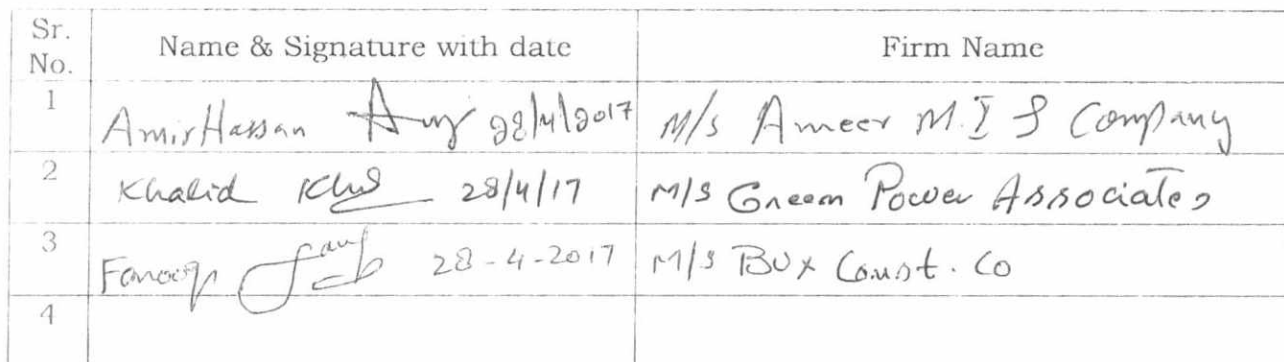 Sr. No. Name & Signature with date Firm Name
1 Amir Hassan 28/4/2017 M/s Ameer M.I S Company
2 Khalid 28/4/17 M/s Green Power Associates
3 Farooq 28-4-2017 M/s BUX Const. Co
4